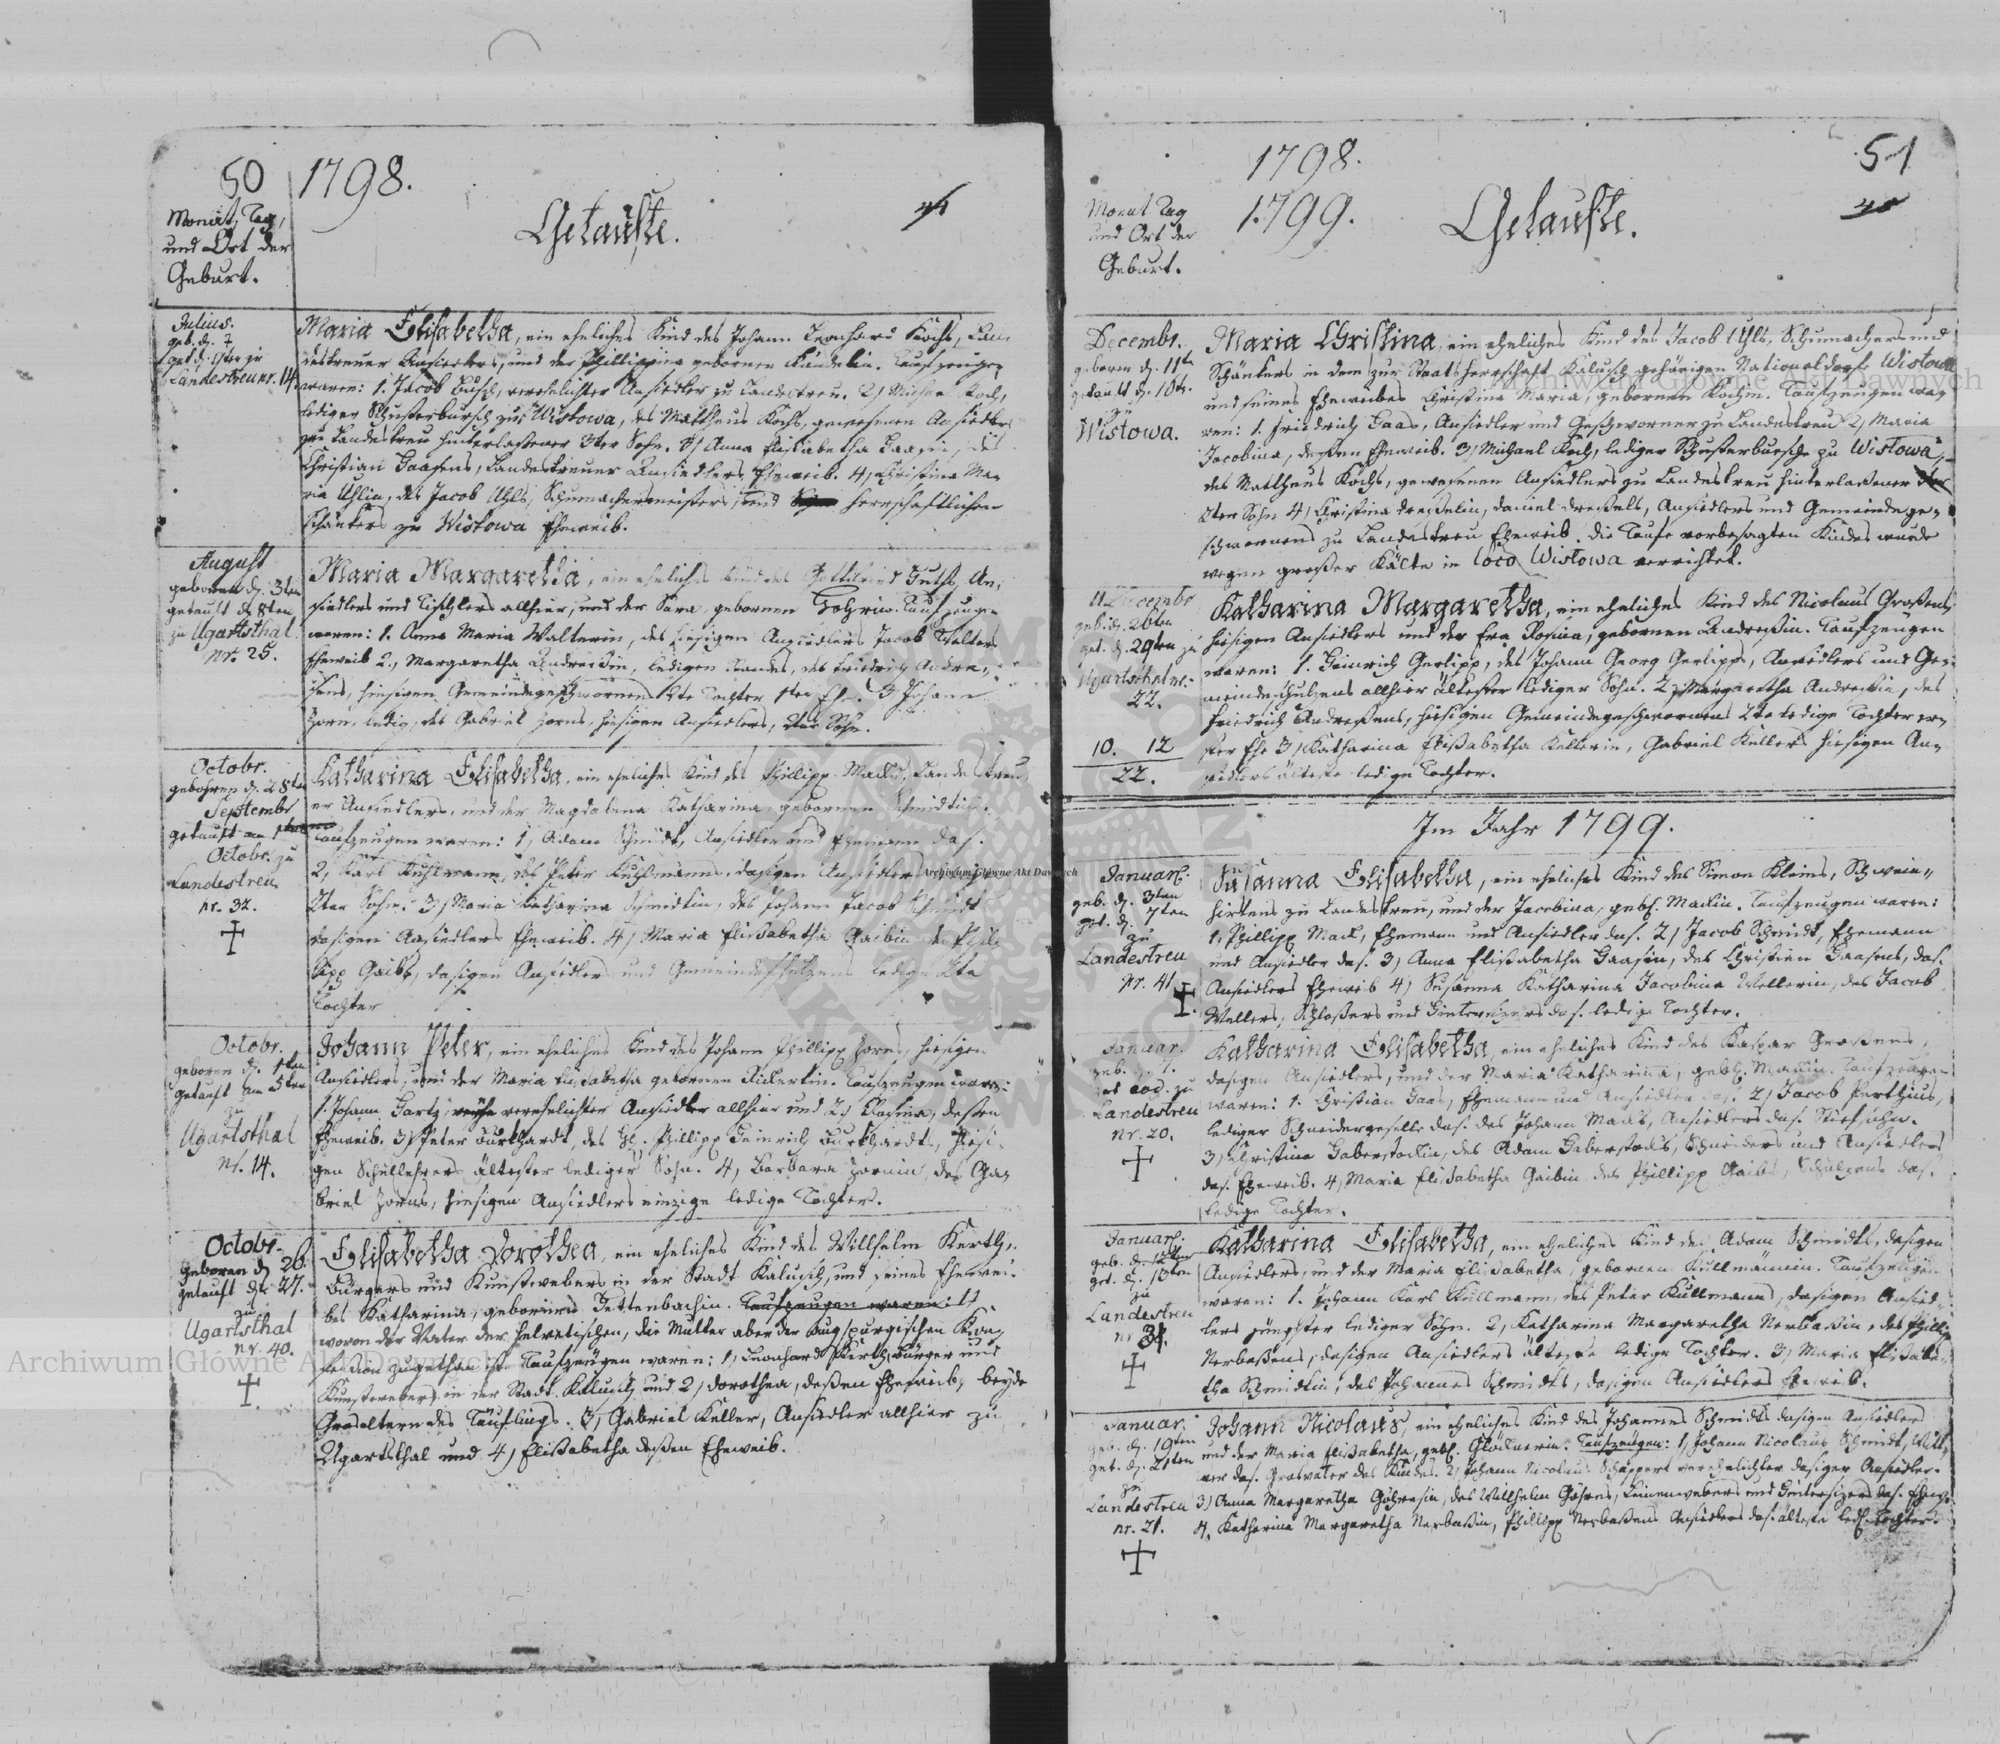 50
1798.
44
Getaufte.
Monat, Tag,
und Ort der
Geburt.
Julius.
geb. d. 7
get. d. 17ten zu
Landestreu nr. 14.
Maria Elisabetha, ein eheliches Kind des Johann Leonhard Kochs, Lan
destreuer Ansiedlers, und der Phillippina gebornen Taufzeugen
waren: 1. Jacob Busch, verehelichter Ansiedler zu Landestreu. 2, Michael Koch,
lediger Schusterbursch zu Wistowa, des Matthäus Kochs, gewesenen Ansiedlers
zu Landestreu hinterlassener 3ter Sohn. 3, Anna Elisabetha Gaasin, des
Christian Gaasens, Landestreuer Ansiedlers Eheweib. 4, Christina Ma
ria Uhlin, des Jacob Uhls, Schumachermeisters, und herrschaftlichen
Schänkers zu Wistowa Eheweib.
August
geboren d. 3ten
getauft d. 8ten
zu Ugartsthal.
nr. 25.
Maria Margaretha, ein eheliches Kind des Gottfried Guths, An
siedlers und Tischlers allhier, und der Sara, gebornen Taufzeugen
waren: 1. Anna Maria Walterin, des hiesigen Ansiedlers Jacob Walters
Eheweib 2., Margaretha Andreßin, ledigen Standes, des Friedrich Andre
ßens, hiesigen Gemeindegeschwornen 2te Tochter 1ter Ehe. 3 Johann
Zorn, ledig, des Gabriel Zorns, hiesigen Ansiedlers, 2ter Sohn.
Octobr.
gebohren d. 28ten
Septembr
getauft am
Octobr. zu
Landestreu
nr. 32.
Katharina Elisabetha, ein eheliches Kind des Phillipp Macks, Landestreu
er Ansiedlers, und der Magdalena Katharina gebornen Schmidtin.
Taufzeugen waren: 1, Adam Schmidt, Ansiedler und Ehemann das.
2, Karl Kuhlmann, des Peter Kuhlmanns, dasigen Ansiedlers lediger
2ter Sohn. 3, Maria Katharina Schmidtin, des Johann Jacob Schmidt
dasigen Ansiedlers Eheweib. 4, Maria Elisabetha Gaibin des Phil
lipp Gaibs, dasigen Ansiedlers und Gemeindeschulzens ledige 2te
Tochter
Octobr.
geboren d. 1ten
getauft am 5ten
zu
Ugartsthal
nr. 14.
Johann Peter, ein eheliches Kind des Johann Phillipp Zorns, hiesigen
Ansiedlers, und der Maria Elisabetha gebornen Rickertin. Taufzeugen waren:
1. Johann Hartz, verehelichter Ansiedler allhier und 2, Rosina, dessen
Eheweib. 3, Peter Burkhardt, des H. Phillipp Heinrich Burkhardts, hiesi
gen Schullehrers ältester lediger Sohn. 4, Barbara Zornin, des Ga
briel Zorns, hiesigen Ansiedlers einzige ledige Tochter.
Octobr.
geboren d. 26.
getauft d. 27.
zu
Ugartsthal
nr. 40.
Elisabetha Dorothea, ein eheliches Kind des Willhelm Kerth,
Bürgers und Kunstwebers in der Stadt Kalusch, und seines Eheweibes
bes Katharina, gebornen Dettenbachin. Taufzeugen waren: 1,
wovon der Vater der helvetischen, die Mutter aber der Augspurgischen Kon
fession zugethan ist. Taufzeugen waren: 1, Leonhard Kerth, Bürger und
Kunstweber in der Stadt Kalusch und 2, Dorothea, deßen Eheweib, beyde
Groseltern des Täuflings. 3, Gabriel Keller, Ansiedler allhier zu
Ugartsthal und 4, Elisabetha deßen Eheweib.
1798.
51
1799.
45
Getaufte.
Monat Tag
und Ort der
Geburt.
Decembr.
geboren d.
getauft d. 10t.
zu
Wistowa.
Maria Christina, ein eheliches Kind des Jacob Uhls, Schumachers und
Schänkers in dem zur Staatsherrschaft Kalusch gehörigen Nationaldorfe Wistowa
und seines Eheweibes Christina Maria, gebornen Kochin. Taufzeugen wa
ren: 1. Friedrich Gaas, Ansiedler und Geschworner zu Landestreu 2, Maria
Jacobina, dessen Eheweib. 3, Michael Koch, lediger Schusterbursche zu Wistowa,
des Matthäus Kochs, gewesenen Ansiedlers zu Landestreu hinterlassener
2ter Sohn 4, Christina Dreßelin, Daniel Dreßels, Ansiedlers und Gemeindege
schwornens zu Landestreu Eheweib. Die Taufe vorbesagten Kindes wurde
wegen großer Kälte in loco Wistowa verrichtet.
Decembr
geb. d. 26ten
get. d. 29ten zu
Ugartsthal nr.
22.
10. 12
22.
Katharina Margaretha, ein eheliches Kind des Nicolaus Großens,
hiesigen Ansiedlers und der Eva Rosina, gebornen Andreßin. Taufzeugen
waren: 1. Heinrich Gerlipp, des Johann Georg Gerlipps, Ansiedlers und Ge
meindeschulzens allhier ältester lediger Sohn. 2, Margaretha Andreßin, des
Friedrich Andreßens, hiesigen Gemeindegeschwornens 2te ledige Tochter er
ster Ehe 3, Katharina Elisabetha Kellerin, Gabriel Kellers hiesigen An
siedlers älteste ledige Tochter.
Im Jahr 1799.
Januar.
geb. d. 3ten
get. d. 7ten
zu
Landestreu
nr. 41
Susanna Elisabetha, ein eheliches Kind des Simon Kleins, Schwein
hirtens zu Landestreu, und der Jacobina, geb. Mackin. Taufzeugen waren:
1, Phillipp Mack, Ehemann und Ansiedler das. 2, Jacob Schmidt, Ehemann
und Ansiedler das. 3, Anna Elisabetha Gaasin, des Christian Gaasens, das.
Ansiedlers Eheweib 4, Susanna Katharina Jacobina Wellerin, des Jacob
Wellers, Schloßers und Hintersizers das. ledige Tochter.
Januar.
geb.
get. eod. zu
Landestreu
nr. 20.
Katharina Elisabetha, ein eheliches Kind des Kaspar Großens,
dasigen Ansiedlers, und der Maria Katharina, geb. Mackin. Taufzeugen
waren: 1. Christian Gaas, Ehemann und Ansiedler das. 2, Jacob Perthius,
lediger Schneidergeselle das. des Johann Maas, Ansiedlers das. Stiefsohn.
3, Christina Haberstockin, des Adam Haberstocks, Schneiders und Ansiedlers
das. Eheweib. 4, Maria Elisabetha Gaibin des Phillipp Gaibs, Schulzens das.
ledige Tochter.
Januar.
geb. d. 12ten
get. d. 13ten
zu
Landestreu
nr 31.
Katharina Elisabetha, ein eheliches Kind des Adam Schmidts, dasigen
Ansiedlers, und der Maria Elisabetha, gebornen Kullmännin. Taufzeugen
waren: 1. Johann Karl Kullmann, des Peter Kullmanns, dasigen Ansied
lers jüngster lediger Sohn. 2, Katharina Margaretha Nerbaßin, des Phillip
Nerbaßens, dasigen Ansiedlers älteste ledige Tochter. 3, Maria Elisabe
tha Schmidtin, des Johannes Schmidts, dasigen Ansiedlers Eheweib.
Januar.
geb. d. 19ten
get. d. 21ten
zu
Landestreu
nr. 21.
Johann Nicolaus, ein eheliches Kind des Johannes Schmidts dasigen Ansiedlers
und der Maria Elisabetha, geb. Glöcknerin. Taufzeugen: 1, Johann Nicolaus Schmidt, Witt
wer das. Grosvater des Kindes. 2, Johann Nicolaus Schappert verehelichter dasiger Ansiedler.
3, Anna Margaretha des Willhelm Leinenwebers und Hintersizers das. Eheweib.
4, Katharina Margaretha Nerbaßin, Phillipp Nerbaßens Ansiedlers das. älteste led. Tochter.
Archiwum Główne Akt Dawnych
Archiwum Główne Akt Dawnych
Archiwum Główne Akt Dawnych